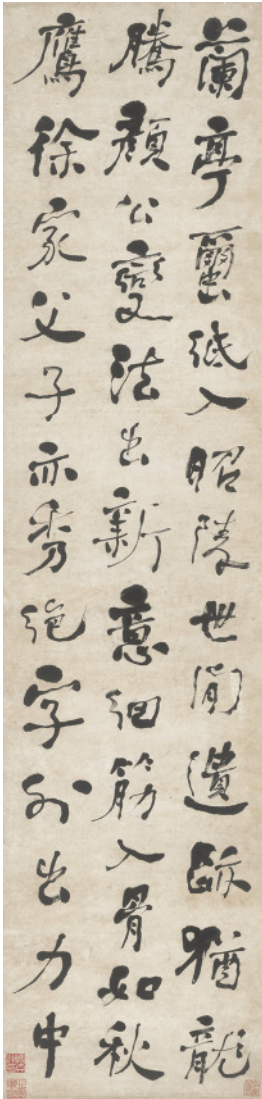 蘭亭蠒紙入昭陵世間遺跡猶龍
騰顏公變法出新意細筋入骨如秋
鷹徐家父子亦秀絕字外出力中